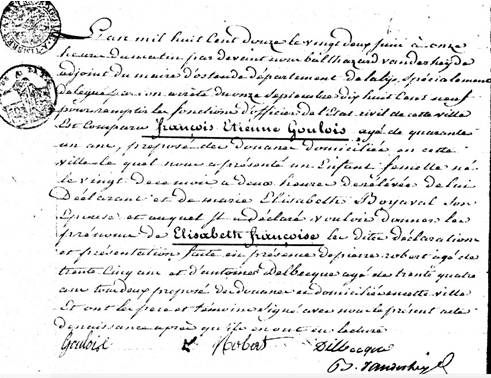 L'an mil huit Cent douze le vingt deux juin à onze
heure du matin par devant nous balthazard vanderheyde
adjoint du maire d'ostende département de la lys, Spécialement
délégué par son arrêté du onze Septembre dix huit Cent neuf
pour remplir les fonctions d'officier de l'Etat civil de cette ville
Est Comparu françois Etienne Goulois agé de quarante
un ans, préposé des douanes domiciliée en cette
ville le quel nous a présenté un Enfant femelle né
le vingt de ce mois a deux heures de relevée de lui
Déclarant et de marie Elisabeth Boyaval Son
Epouse et auquel il a déclaré vouloir donner les
prénoms de Elisabeth françoise les dites déclaration
et présentation faite en présence de pierre robert agé de
trente Cinq ans et d'antoine Delbecque agé de trente quatre
ans tous deux préposé de douane et domicilié en cette ville
Et ont les pere et témoins Signé avec nous le présent acte
de naissance après qu'il en ont eu lecture
Goulois Robert Dilbecque
B. Vanderheyde